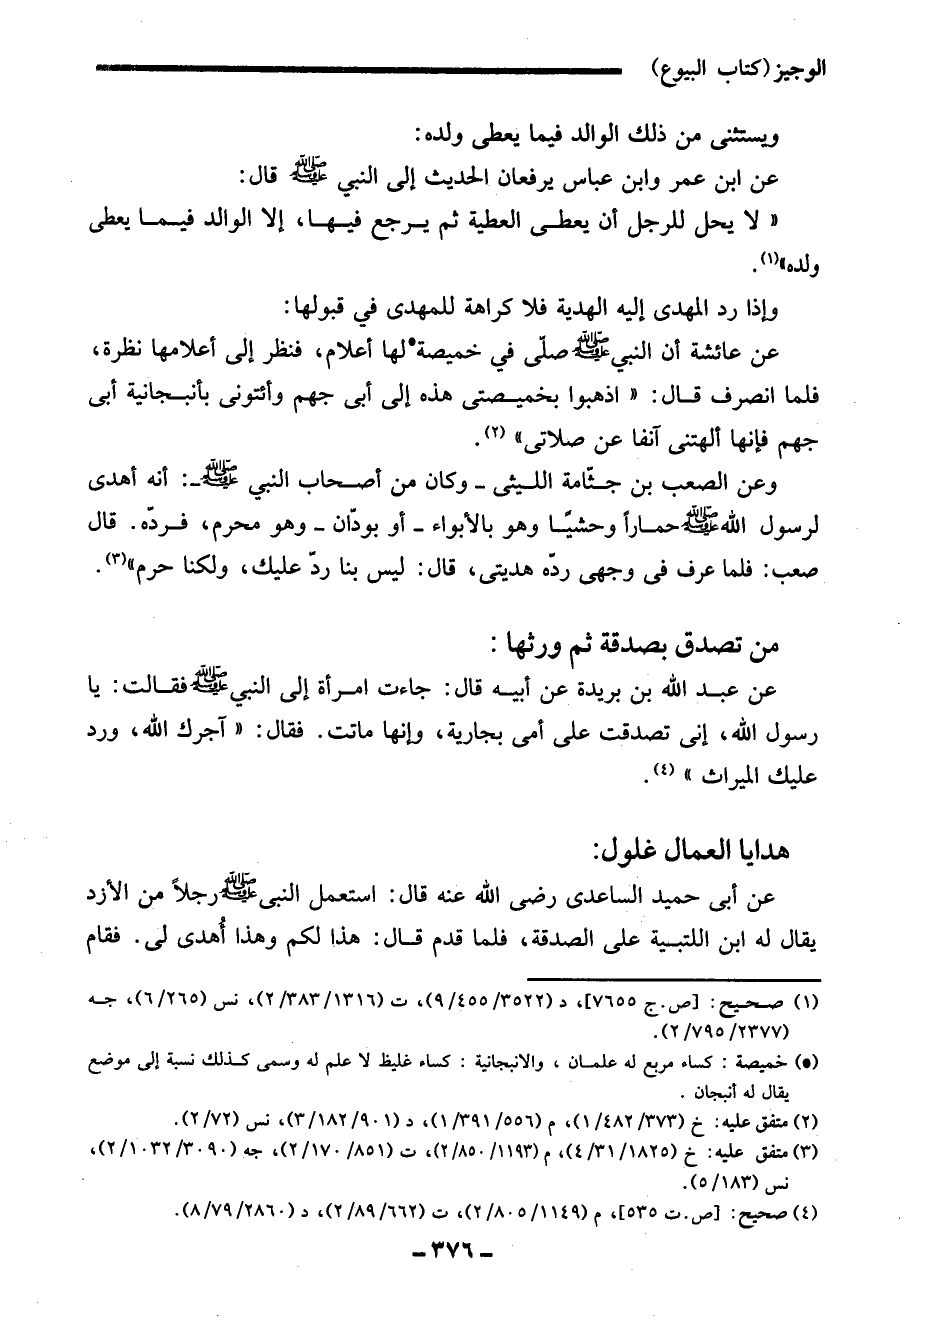 الوجيز (كتاب البيوع)
ويستثنى من ذلك الوالد فيما يعطى ولده:
عن ابن عمر وابن عباس يرفعان الحديث إلى النبي ﷺ قال:
« لا يحل للرجل أن يعطى العطية ثم يرجع فيها، إلا الوالد فيما يعطى
ولده»(١).
وإذا رد المهدى إليه الهدية فلا كراهة للمهدى في قبولها:
عن عائشة أن النبي ﷺ صلّى في خميصة• لها أعلام، فنظر إلى أعلامها نظرة،
فلما انصرف قال: « اذهبوا بخميصتى هذه إلى أبى جهم وأئتونى بأنبجانية أبى
جهم فإنها ألهتنى آنفا عن صلاتى» (٢).
وعن الصعب بن جثّامة الليثى ـ وكان من أصحاب النبي ﷺ ـ: أنه أهدى
لرسول الله ﷺ حماراً وحشيًا وهو بالأبواء ـ أو بودّان ـ وهو محرم، فردّه. قال
صعب: فلما عرف فى وجهى ردّه هديتى، قال: ليس بنا ردّ عليك، ولكنا حرم»(٣).
من تصدق بصدقة ثم ورثها:
عن عبد الله بن بريدة عن أبيه قال: جاءت امرأة إلى النبي ﷺ فقالت: يا
رسول الله، إنى تصدقت على أمى بجارية، وإنها ماتت. فقال: « آجرك الله، ورد
عليك الميراث » (٤).
هدايا العمال غلول:
عن أبى حميد الساعدى رضى الله عنه قال: استعمل النبى ﷺ رجلاً من الأزد
يقال له ابن اللتبية على الصدقة، فلما قدم قال: هذا لكم وهذا أُهدى لى. فقام
(١) صحيح: [ص.ج ٧٦٥٥]، د (٩/٤٥٥/٣٥٢٢)، ت (٢/٣٨٣/١٣١٦)، نس (٦/٢٦٥)، جـه
(٢/٧٩٥/٢٣٧٧).
(•) خميصة : كساء مربع له علمان ، والانبجانية : كساء غليظ لا علم له وسمى كذلك نسبة إلى موضع
يقال له أنبجان .
(٢) متفق عليه: خ (١/٤٨٢/٣٧٣)، م (١/٣٩١/٥٥٦)، د (٣/١٨٢/٩٠١)، نس (٢/٧٢).
(٣) متفق عليه: خ (٤/٣١/١٨٢٥)، م (٢/٨٥٠/١١٩٣)، ت (٢/١٧٠/٨٥١)، جه (٢/١٠٣٢/٣٠٩٠)،
نس (٥/١٨٣).
(٤) صحيح: [ص.ت ٥٣٥]، م (٢/٨٠٥/١١٤٩)، ت (٢/٨٩/٦٦٢)، د (٨/٧٩/٢٨٦٠).
ـ ٣٧٦ ـ